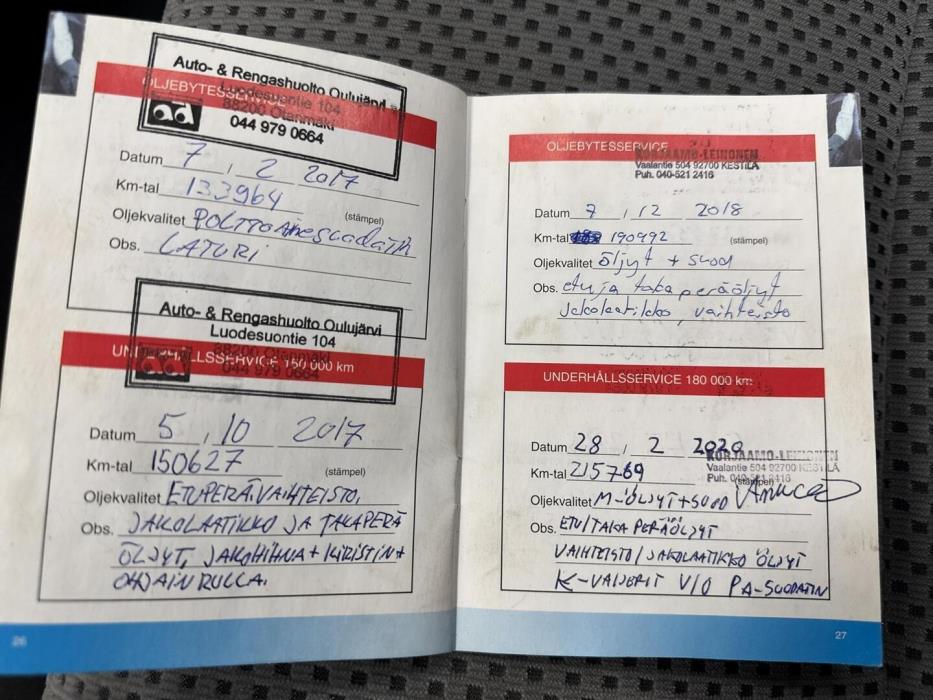 Auto- & Rengashuolto Oulujärvi
Luodesuontie 104
88200 Otanmäki
044 979 0664
OLJEBYTESSERVICE
Datum 7 , 2 2017
Km-tal 133964
(stämpel)
Oljekvalitet POLTTOAinesuodatin
Obs. LATURI
Auto- & Rengashuolto Oulujärvi
Luodesuontie 104
88200 Otanmäki
044 979 0664
UNDERHÅLLSSERVICE 150 000 km
Datum 5 , 10 2017
Km-tal 150627
(stämpel)
Oljekvalitet ETUPERÄ, VAIHTEISTO,
Obs. JAKOLAATIKKO JA TAKAPERÄ
ÖLJYT, JAKOHIHNA + KIRISTIN +
OHJAINRULLA.
26
OLJEBYTESSERVICE
KORJAAMO-LEINONEN
Vaalantie 504 92700 KESTILÄ
Puh. 040-521 2416
Datum 7 , 12 2018
Km-tal 190992
(stämpel)
Oljekvalitet öljyt + suod
Obs. etu ja taka peräöljyt
Jakolaatikko, vaihteisto
UNDERHÅLLSSERVICE 180 000 km:
Datum 28 , 2 2020
KORJAAMO-LEINONEN
Vaalantie 504 92700 KESTILÄ
Puh. 040-521 2416
Km-tal 215769
(stämpel)
Oljekvalitet M-ÖLJYT+SUOD
Obs. ETU/TAKA PERÄÖLJYT
VAIHTEISTO/JAKOLAATIKKO ÖLJYT
K-VAIJERIT V/O PA-SUODATIN
27